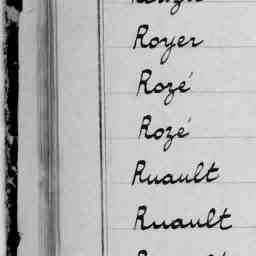 Royer
Rozé
Rozé
Ruault
Ruault